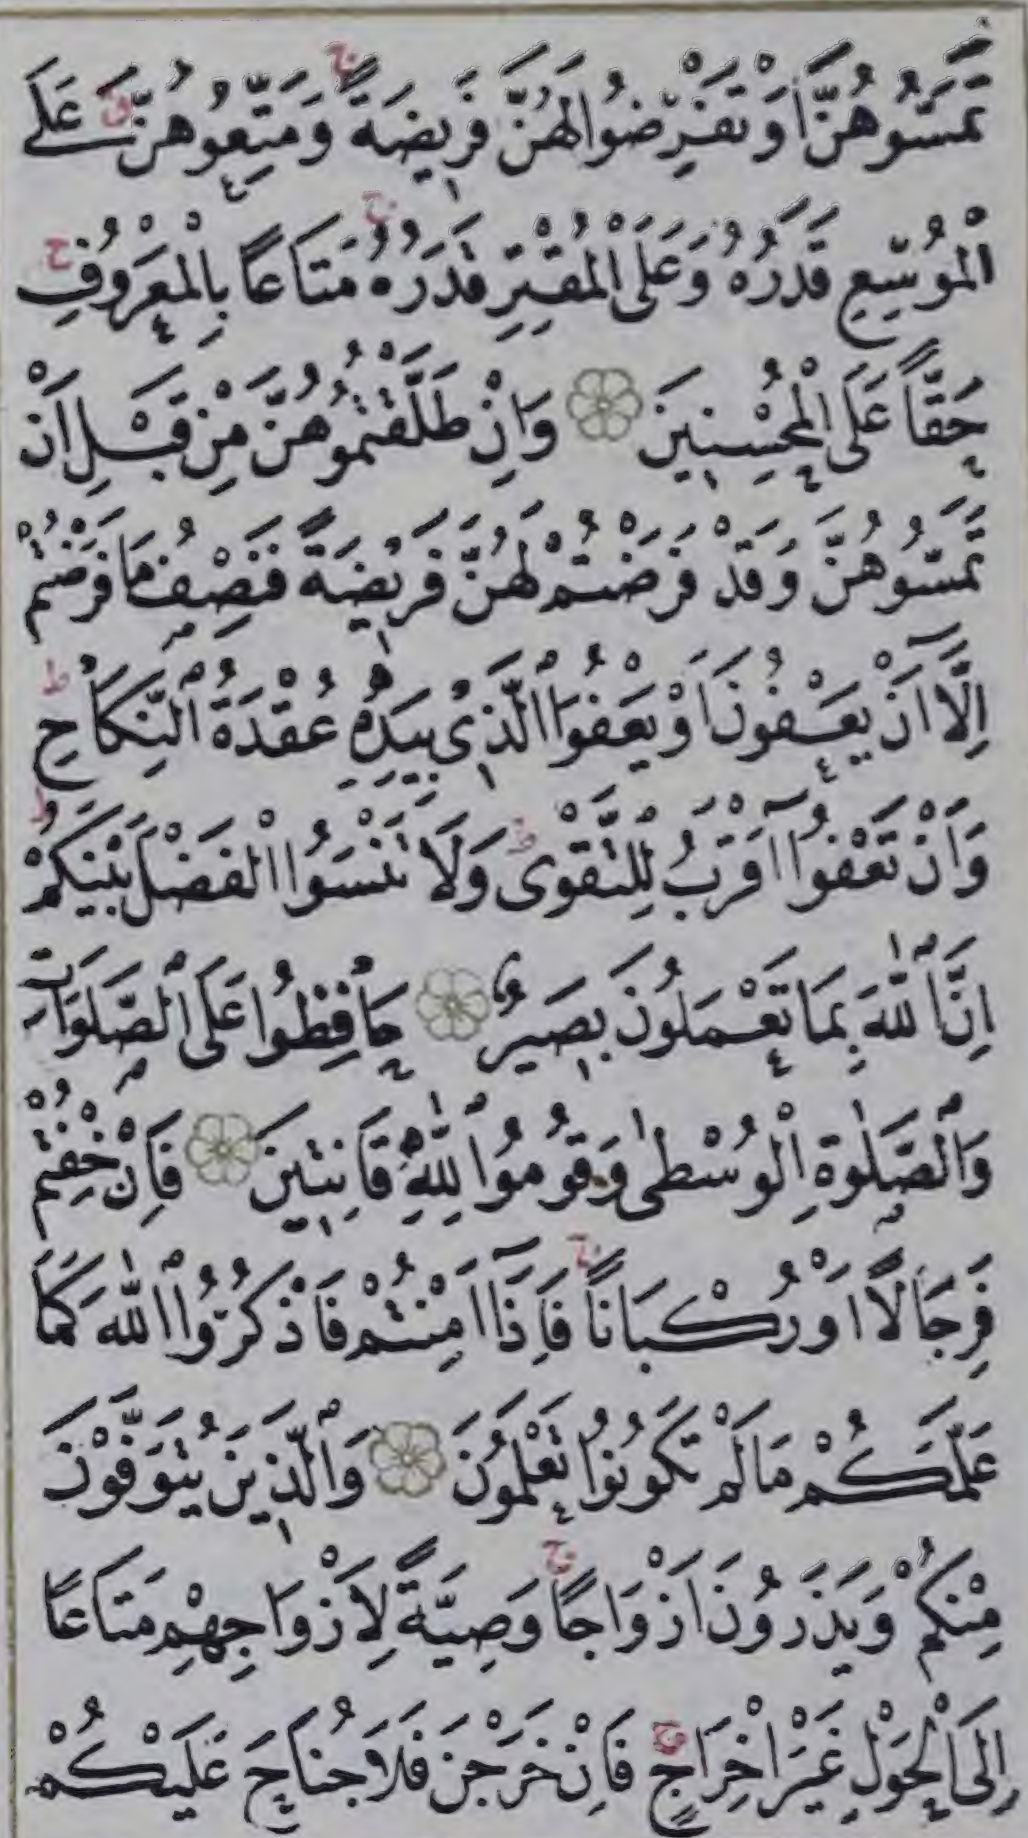 تَمَسُّوهُنَّ اَوْ تَفْرِضُوا لَهُنَّ فَرِيضَةً ۚ وَمَتِّعُوهُنَّ عَلَى
الْمُوسِعِ قَدَرُهُ وَعَلَى الْمُقْتِرِ قَدَرُهُ مَتَاعاً بِالْمَعْرُوفِ ۚ
حَقّاً عَلَى الْمُحْسِنِينَ ۝ وَاِنْ طَلَّقْتُمُوهُنَّ مِنْ قَبْلِ اَنْ
تَمَسُّوهُنَّ وَقَدْ فَرَضْتُمْ لَهُنَّ فَرِيضَةً فَنِصْفُ مَا فَرَضْتُمْ
اِلَّا اَنْ يَعْفُونَ اَوْ يَعْفُوَا الَّذِى بِيَدِهِ عُقْدَةُ النِّكَاحِ ۜ
وَاَنْ تَعْفُوا اَقْرَبُ لِلتَّقْوٰى ۜ وَلَا تَنْسَوُا الْفَضْلَ بَيْنَكُمْ ۜ
اِنَّ اللّٰهَ بِمَا تَعْمَلُونَ بَصِيرٌ ۝ حَافِظُوا عَلَى الصَّلَوَاتِ
وَالصَّلٰوةِ الْوُسْطٰى وَقُومُوا لِلّٰهِ قَانِتِينَ ۝ فَاِنْ خِفْتُمْ
فَرِجَالاً اَوْ رُكْبَاناً ۚ فَاِذَا اَمِنْتُمْ فَاذْكُرُوا اللّٰهَ كَمَا
عَلَّمَكُمْ مَا لَمْ تَكُونُوا تَعْلَمُونَ ۝ وَالَّذِينَ يُتَوَفَّوْنَ
مِنْكُمْ وَيَذَرُونَ اَزْوَاجًا ۚ وَصِيَّةً لِاَزْوَاجِهِمْ مَتَاعًا
اِلَى الْحَوْلِ غَيْرَ اِخْرَاجٍ ۚ فَاِنْ خَرَجْنَ فَلَا جُنَاحَ عَلَيْكُمْ